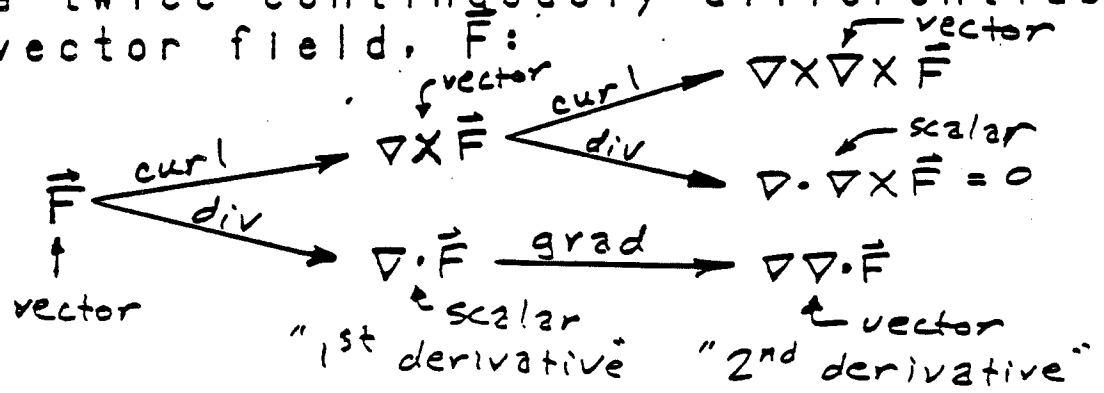 vector field, F⃗:
vector
∇×∇×F⃗
vector
curl
∇×F⃗
curl
div
scalar
∇·∇×F⃗ = 0
F⃗
div
∇·F⃗
grad
∇∇·F⃗
vector
scalar
vector
"1st derivative"
"2nd derivative"